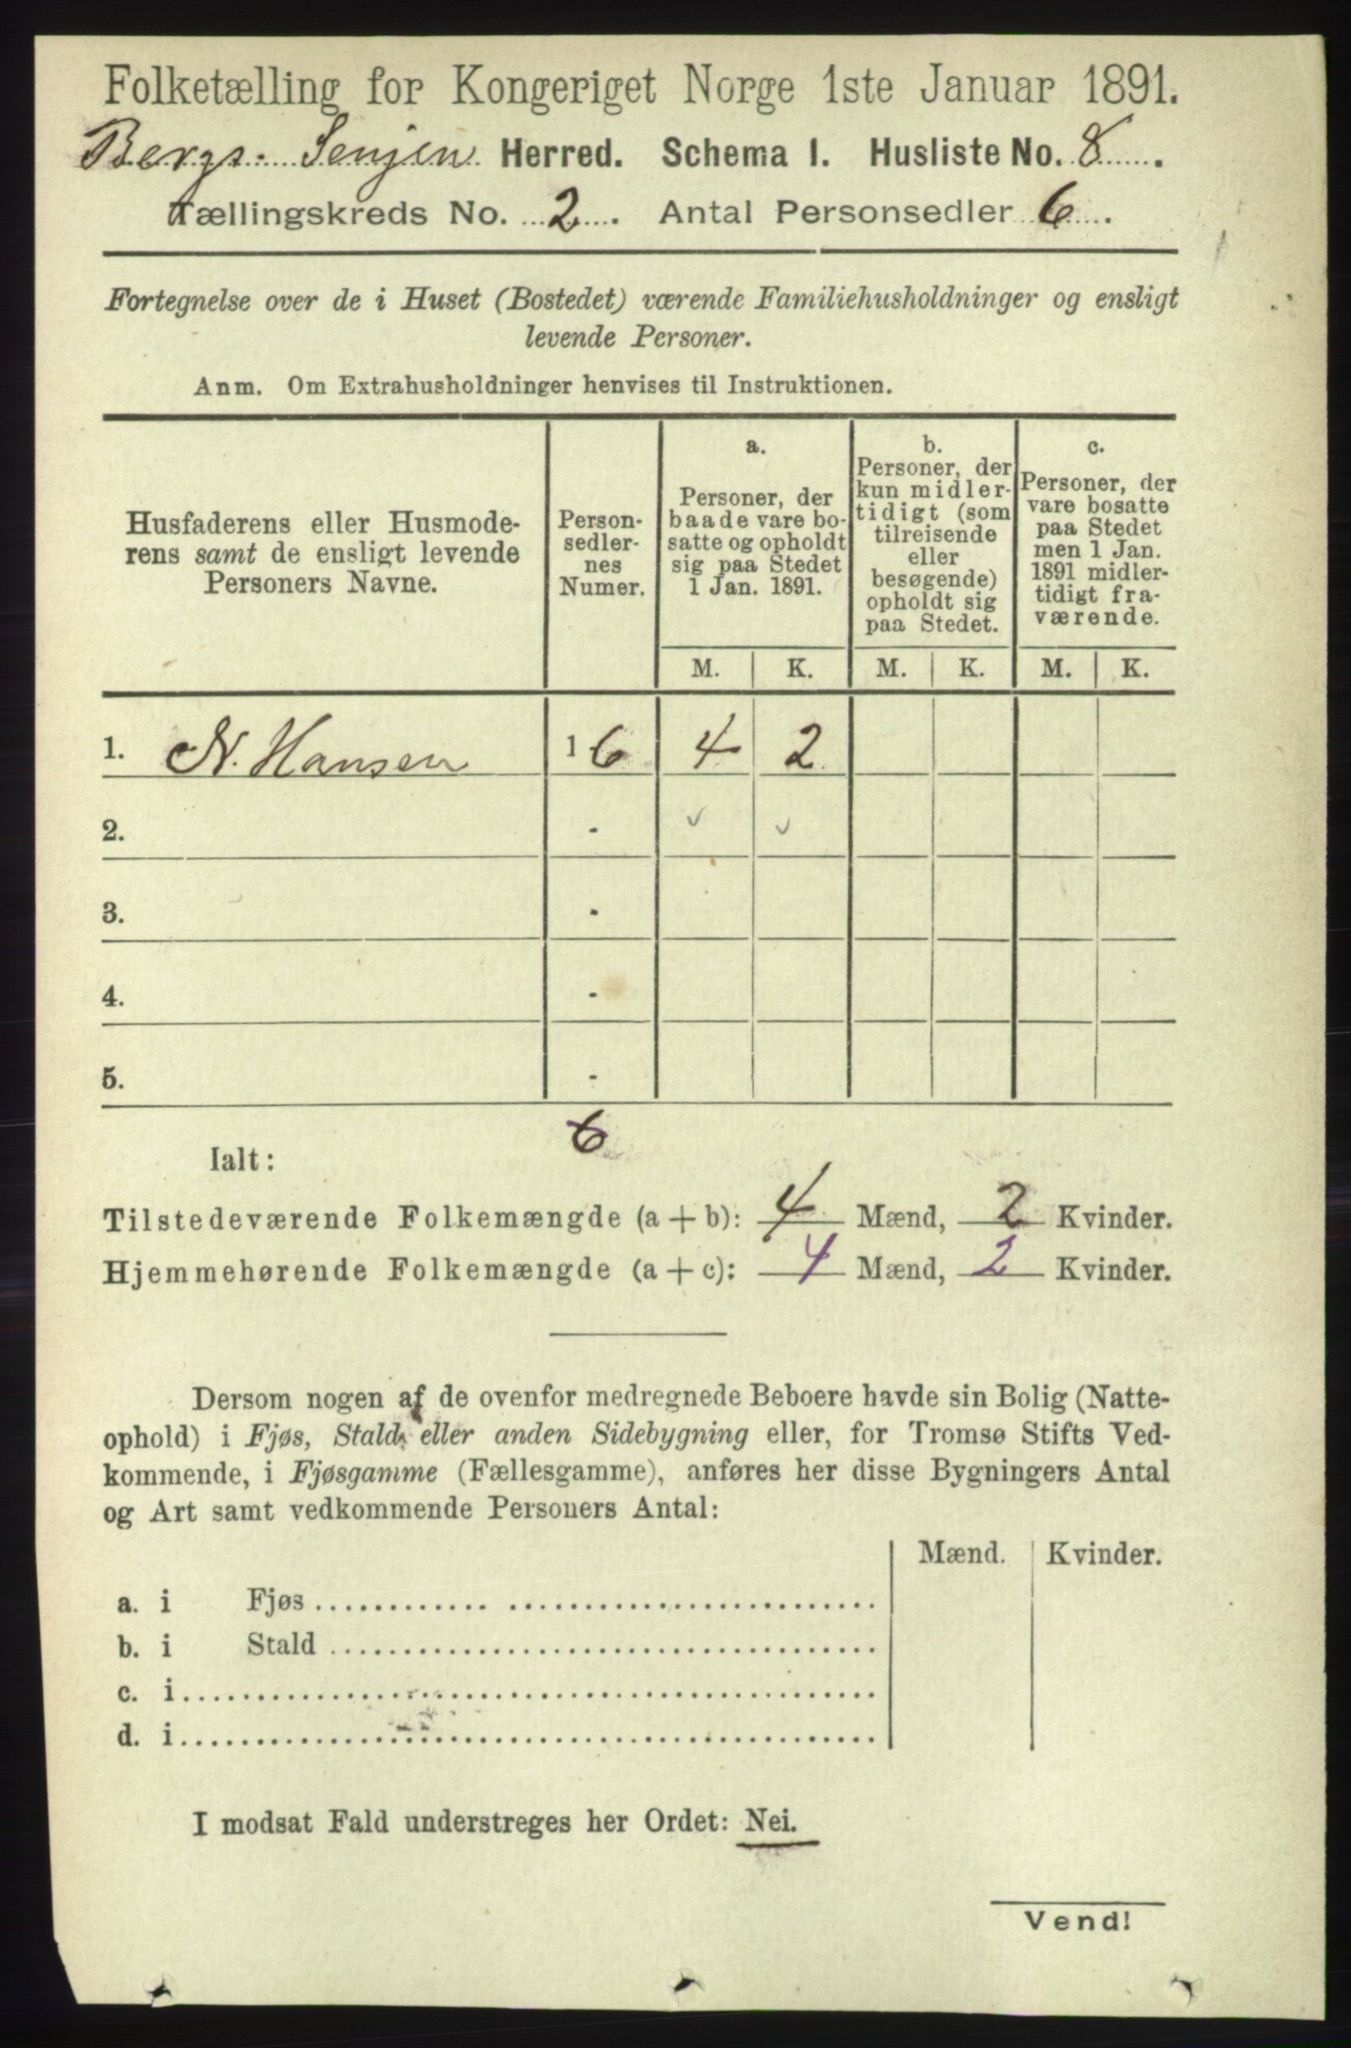 Folketælling for Kongeriget Norge 1ste Januar 1891.
Bergs. Senjen Herred. Schema I. Husliste No. 8.
Tællingskreds No. 2. Antal Personsedler 6.
Fortegnelse over de i Huset (Bostedet) værende Familiehusholdninger og ensligt
levende Personer.
Anm. Om Extrahusholdninger henvises til Instruktionen.
Husfaderens eller Husmode-
rens samt de ensligt levende
Personers Navne.
Person-
sedler-
nes
Numer.
a.
Personer, der
baade vare bo-
satte og opholdt
sig paa Stedet
1 Jan. 1891.
b.
Personer, der
kun midler-
tidigt (som
tilreisende
eller
besøgende)
opholdt sig
paa Stedet.
c.
Personer, der
vare bosatte
paa Stedet
men 1 Jan.
1891 midler-
tidigt fra-
værende.
M. K. M. K. M. K.
1. N. Hansen 1 - 6 4 2
2. -
3. -
4. -
5. -
6
Ialt:
Tilstedeværende Folkemængde (a + b): 4 Mænd, 2 Kvinder.
Hjemmehørende Folkemængde (a + c): 4 Mænd, 2 Kvinder.
Dersom nogen af de ovenfor medregnede Beboere havde sin Bolig (Natte-
ophold) i Fjøs, Stald eller anden Sidebygning eller, for Tromsø Stifts Ved-
kommende, i Fjøsgamme (Fællesgamme), anføres her disse Bygningers Antal
og Art samt vedkommende Personers Antal:
Mænd. Kvinder.
a. i Fjøs
b. i Stald
c. i
d. i
I modsat Fald understreges her Ordet: Nei.
Vend!